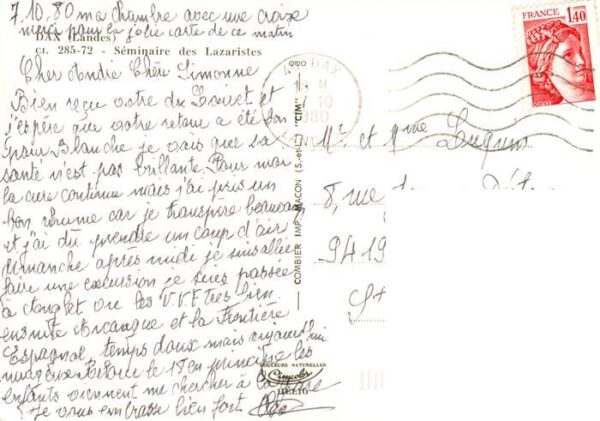 7.10.80 ma chambre avec une croix
merci pour la jolie carte de ce matin
DAX (Landes)
CI. 285-72 - Séminaire des Lazaristes
Cher André Chère Simonne
Bien reçu votre du Loiret et
j'espère que votre retour a été bon
pour Blanche je vois que sa
santé n'est pas brillante. Pour moi
la cure continue mais j'ai pris un
bon rhume car je transpire beaucoup
et j'ai dû prendre un coup d'air
dimanche après midi je suis allée
faire une excursion je suis passée
à Anglet vu les V.V.F très bien
ensuite Arcangue et la Frontière
Espagnol temps doux mais aujourd'hui
nuageux. Retour le 18 en principe les
enfants viennent me chercher à la gare
Je vous embrasse bien fort
COMBIER IMP. MACON (S.-et-L.) "CIM"
COULEURS NATURELLES
Cimcolor
HELIO
FRANCE
1,40
DAX
10
1980
Mr et Mme
8, rue
9419
St